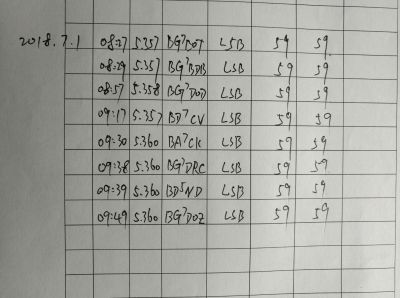 2018.7.1 08:27 5.357 BG7BOT LSB 59 59
08:29 5.357 BG7BDB LSB 59 59
08:57 5.358 BG7DOD LSB 59 59
09:17 5.357 BD7CV LSB 59 59
09:30 5.360 BA7CK LSB 59 59
09:38 5.360 BG7DRC LSB 59 59
09:39 5.360 BD5ND LSB 59 59
09:49 5.360 BG7DOZ LSB 59 59